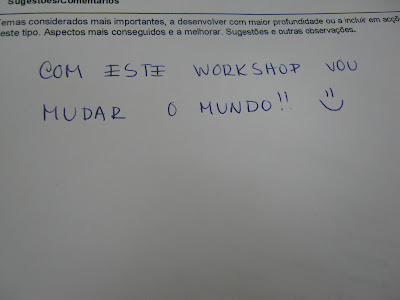 Sugestões/Comentários
Temas considerados mais importantes, a desenvolver com maior profundidade ou a incluir em acçõ
este tipo. Aspectos mais conseguidos e a melhorar. Sugestões e outras observações.
COM ESTE WORKSHOP VOU
MUDAR O MUNDO!!